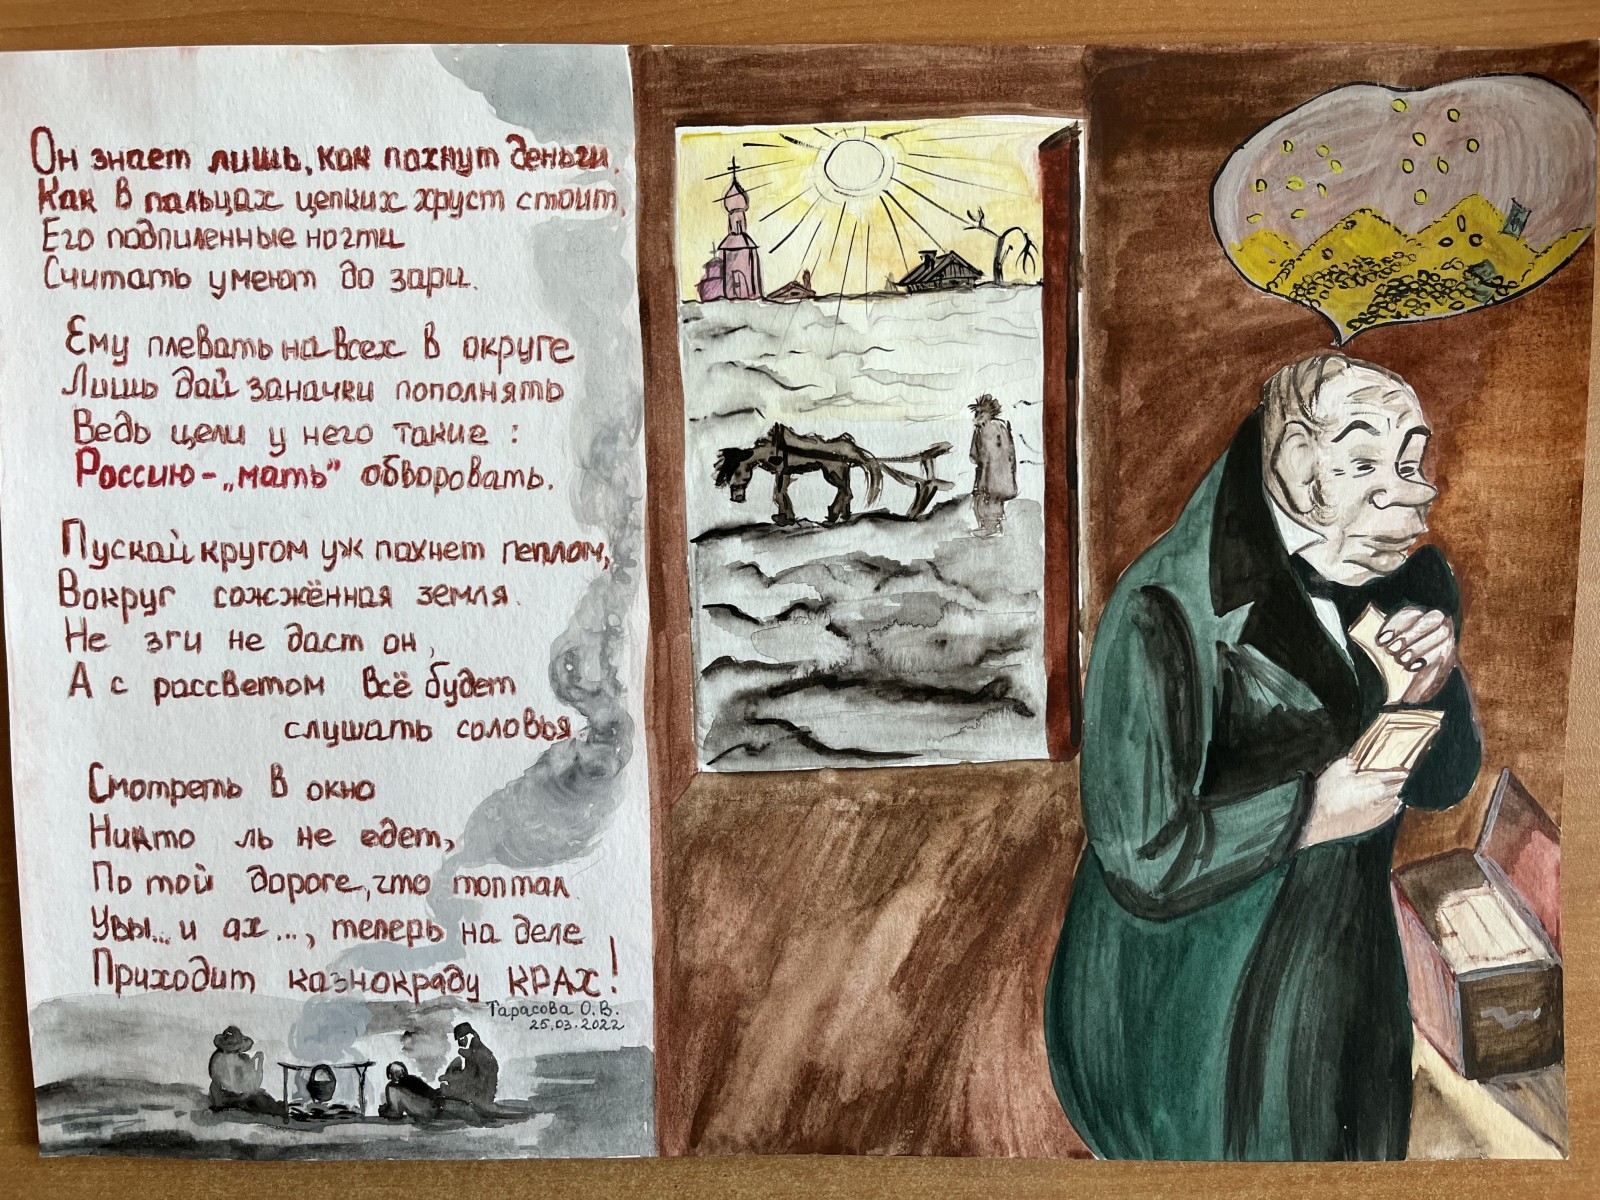 Он знает лишь, как пахнут деньги,
Как в пальцах цепких хруст стоит,
Его подпиленные ногти
Считать умеют до зари.
Ему плевать на всех в округе
Лишь дай заначки пополнять
Ведь цели у него такие:
Россию-„мать" обворовать.
Пускай кругом уж пахнет пеплом,
Вокруг сожжённая земля.
Не зги не даст он,
А с рассветом всё будет
слушать соловья.
Смотреть в окно
Никто ль не едет,
По той дороге, что топтал.
Увы... и ах..., теперь на деле
Приходит казнокраду КРАХ!
Тарасова О.В.
25.03.2022